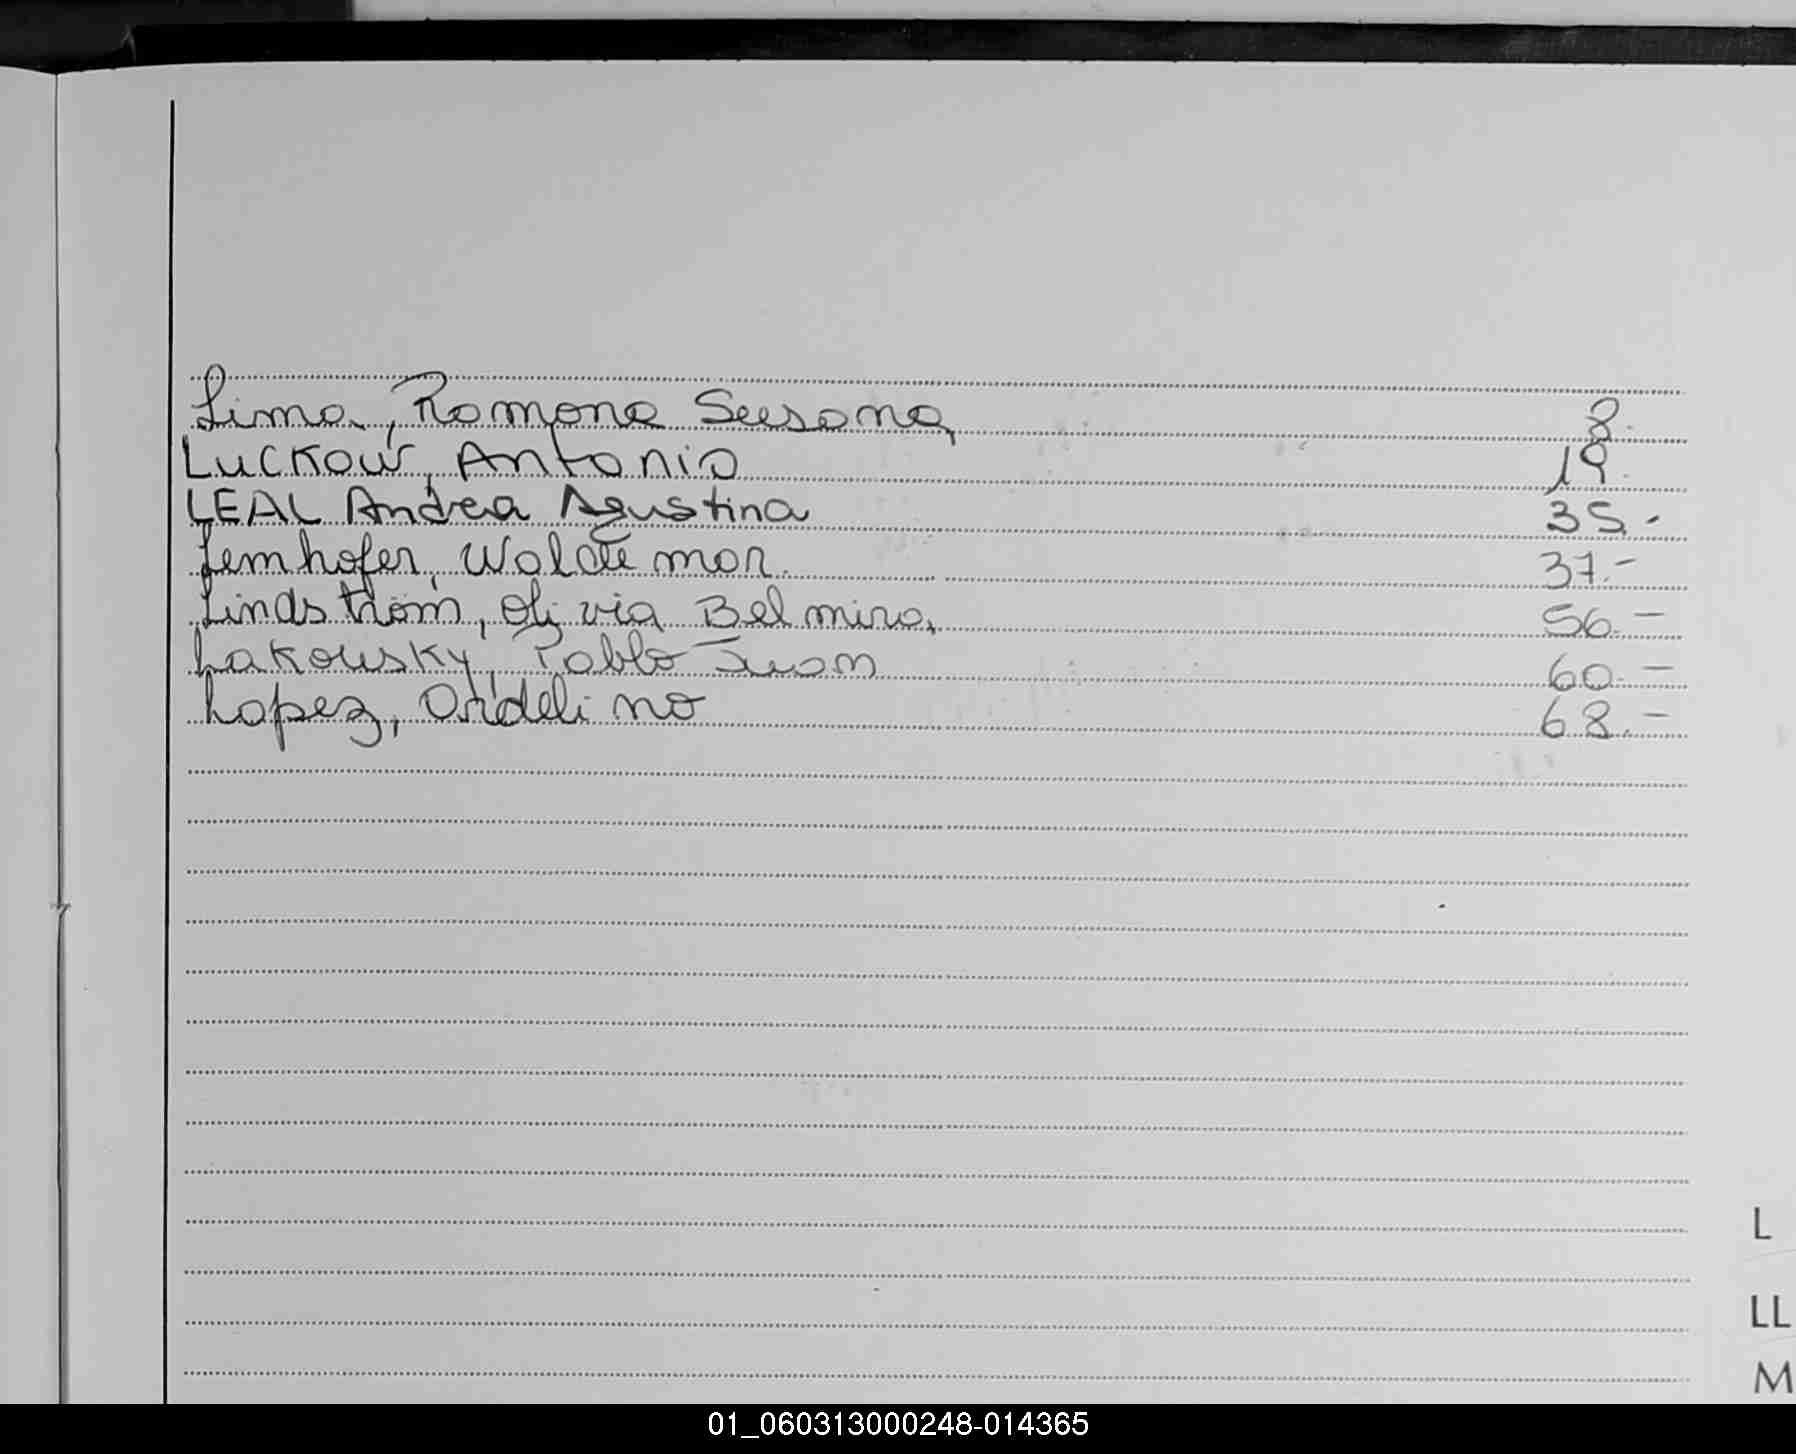 Lima, Ramona Susana, 8.
Luckow, Antonio 19.
LEAL Andrea Agustina 35.-
Lemhofer, Waldemar. 37.-
Lindström, Olivia Belmira, 56.-
Lakowsky, Pablo Juan 60.-
Lopez, Ordelino 68.-
L
LL
M
01_060313000248-014365